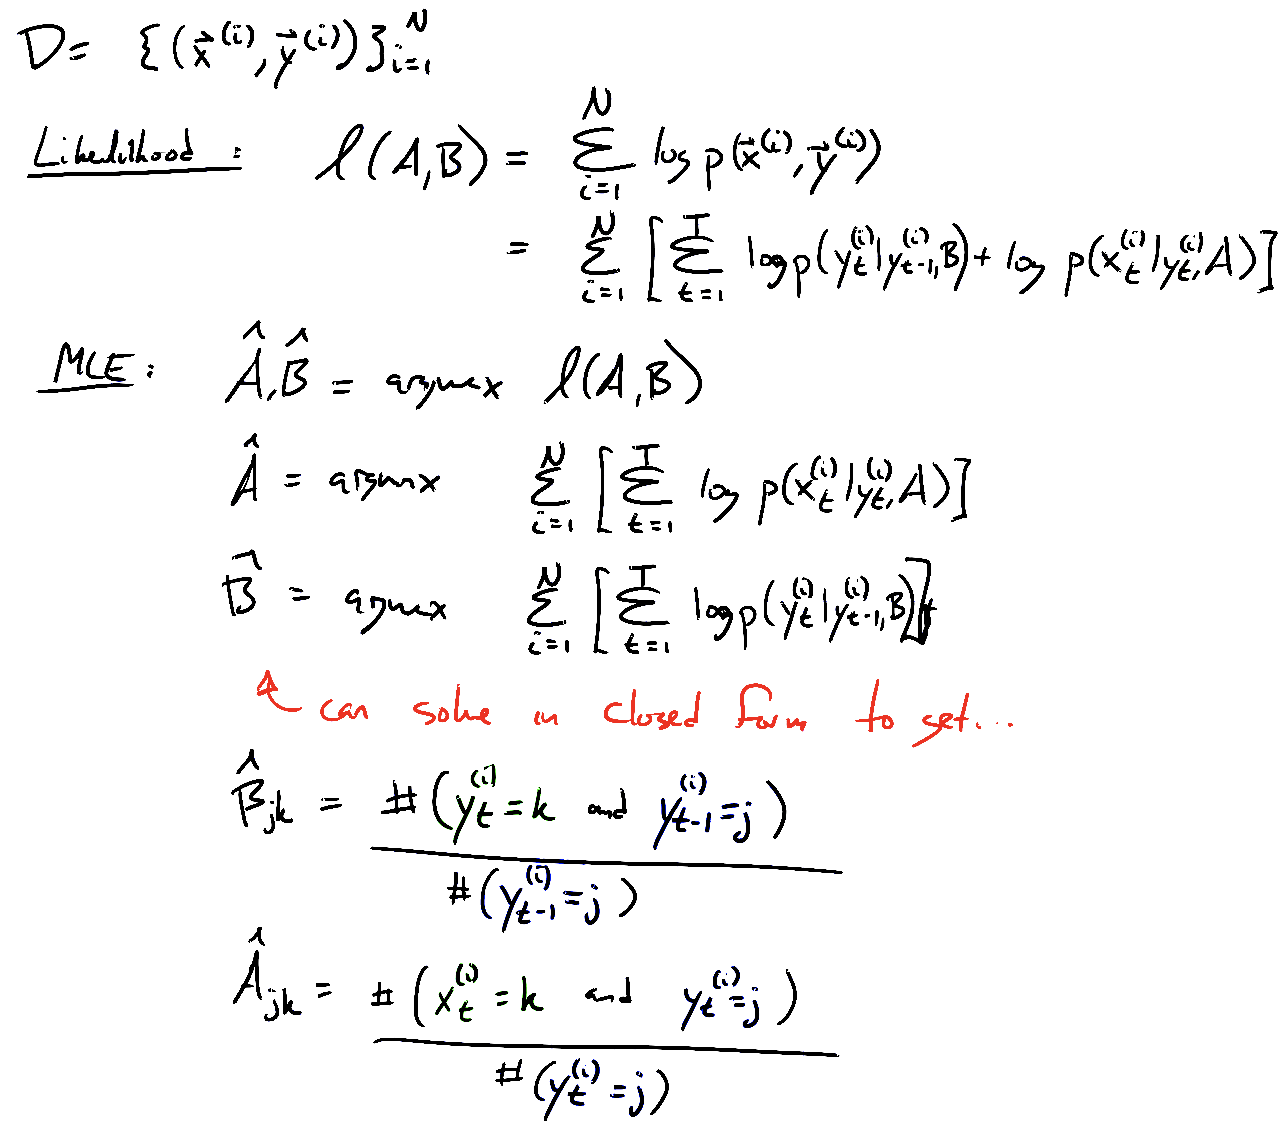 D = {(x⃗^(i), y⃗^(i))}_{i=1}^N
Likelihood : ℓ(A,B) = Σ_{i=1}^N log p(x⃗^(i), y⃗^(i))
= Σ_{i=1}^N [ Σ_{t=1}^T log p(y_t^(i) | y_{t-1}^(i), B) + log p(x_t^(i) | y_t^(i), A) ]
MLE : Â, B̂ = argmax ℓ(A,B)
Â = argmax Σ_{i=1}^N [ Σ_{t=1}^T log p(x_t^(i) | y_t^(i), A) ]
B̂ = argmax Σ_{i=1}^N [ Σ_{t=1}^T log p(y_t^(i) | y_{t-1}^(i), B) ]
can solve in closed form to get...
B̂_jk = #(y_t^(i) = k and y_{t-1}^(i) = j)
#(y_{t-1}^(i) = j)
Â_jk = #(x_t^(i) = k and y_t^(i) = j)
#(y_t^(i) = j)